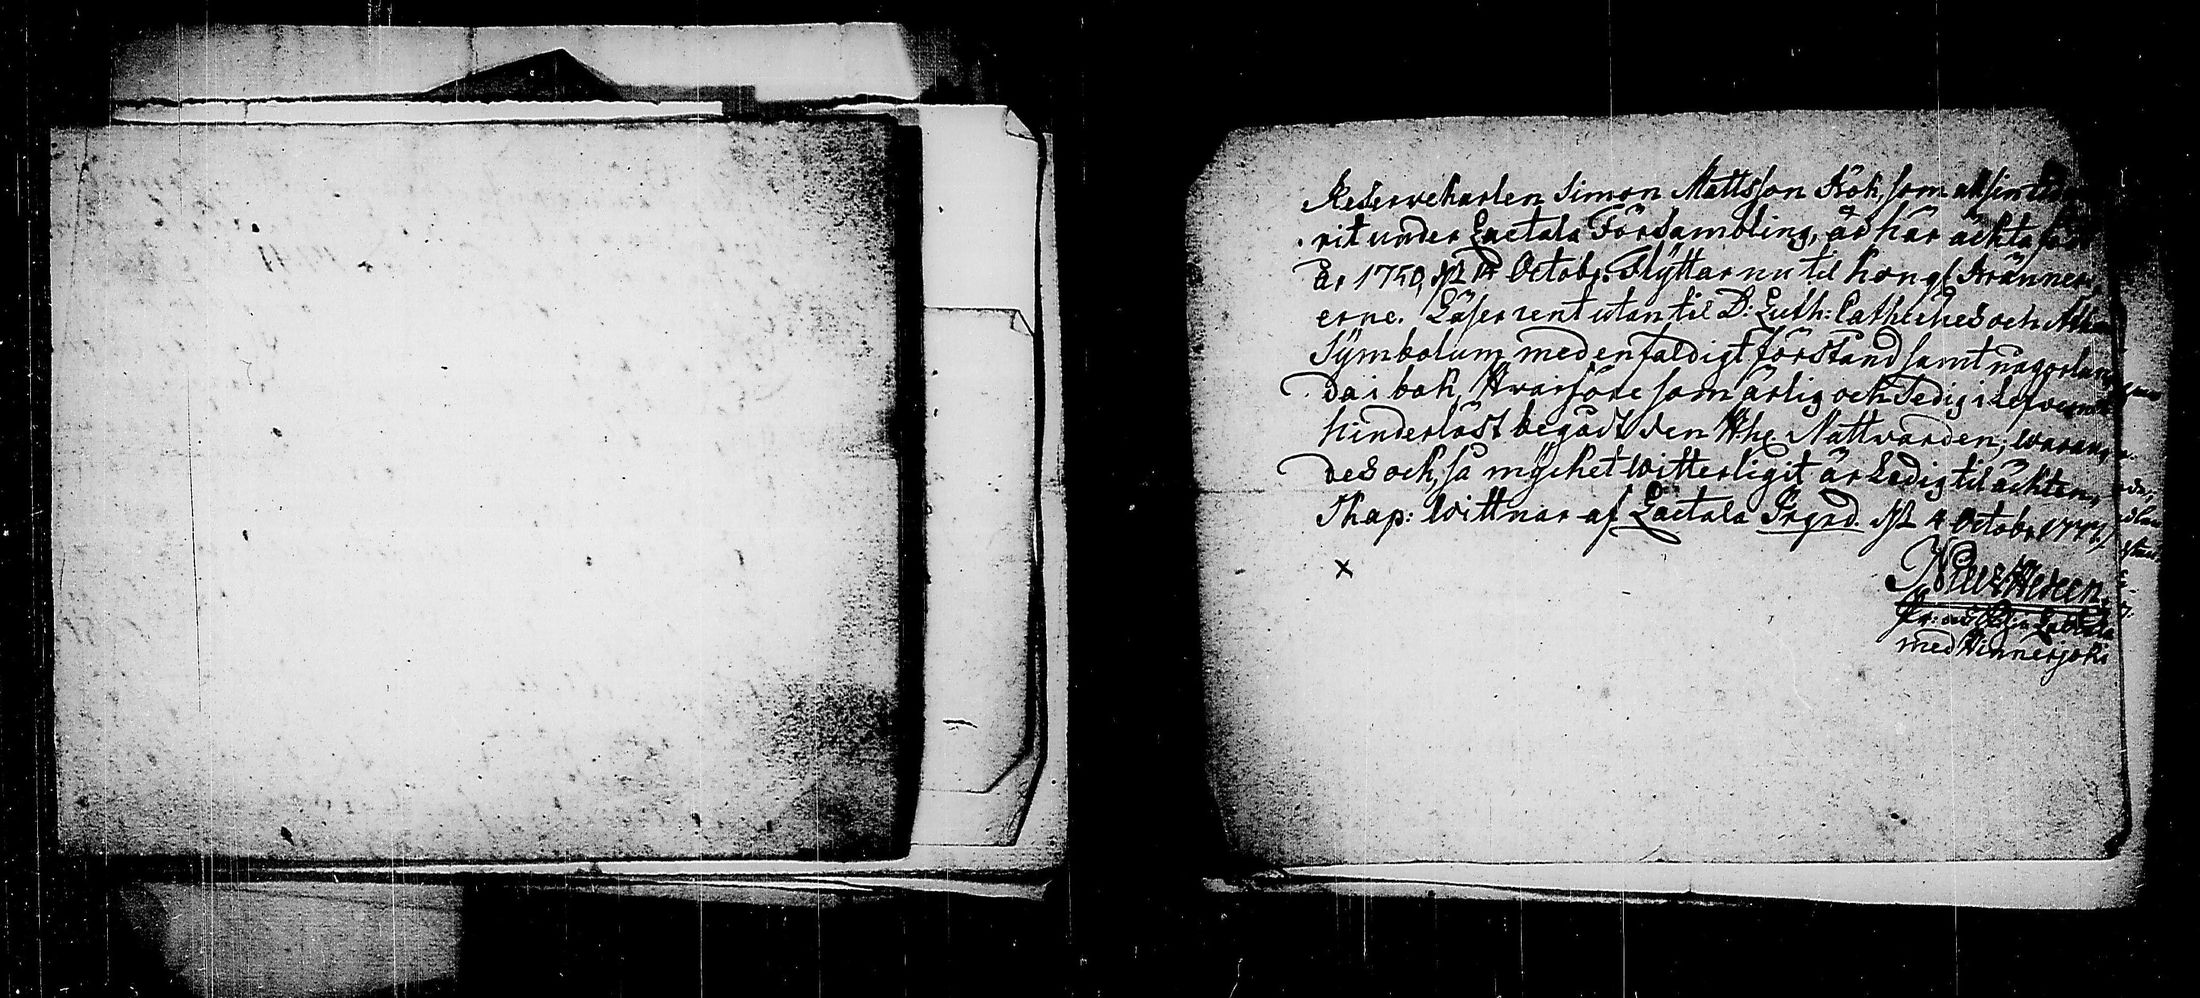 Reservekarlen Simon Mattsson Kök, som all sin tid wa,
rit under Laetala Försambling, är här äckta född
År 1750, d 14 Octobr. Flyttar nu til Kongl Kränner,
erne. Läser rent utan til D: Luth: Cateches och Atha
Symbolum med enfaldigt förstånd samt någorlun,
da i bok, Hvarföre som ärlig och Sedig i lefvernet
hinderlöst begådt den H:he Nattvarden; waran,
des och, så mycket witterligit är Ledig til äckten,
skap: Wittnar af Laetala Prgrd. d 4 Octobr 1771
Nils Heleen
med Hinnerjoki